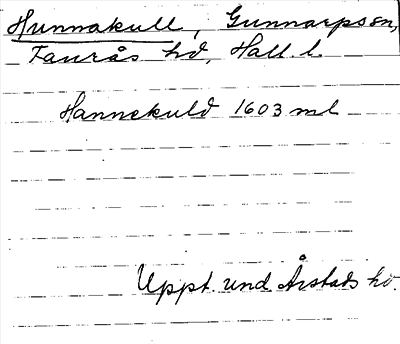 Hunnakull, Gunnarps sn,
Faurås hd, Hall. l.
Hannekuld 1603 ml
Uppt. und. Årstads hd.